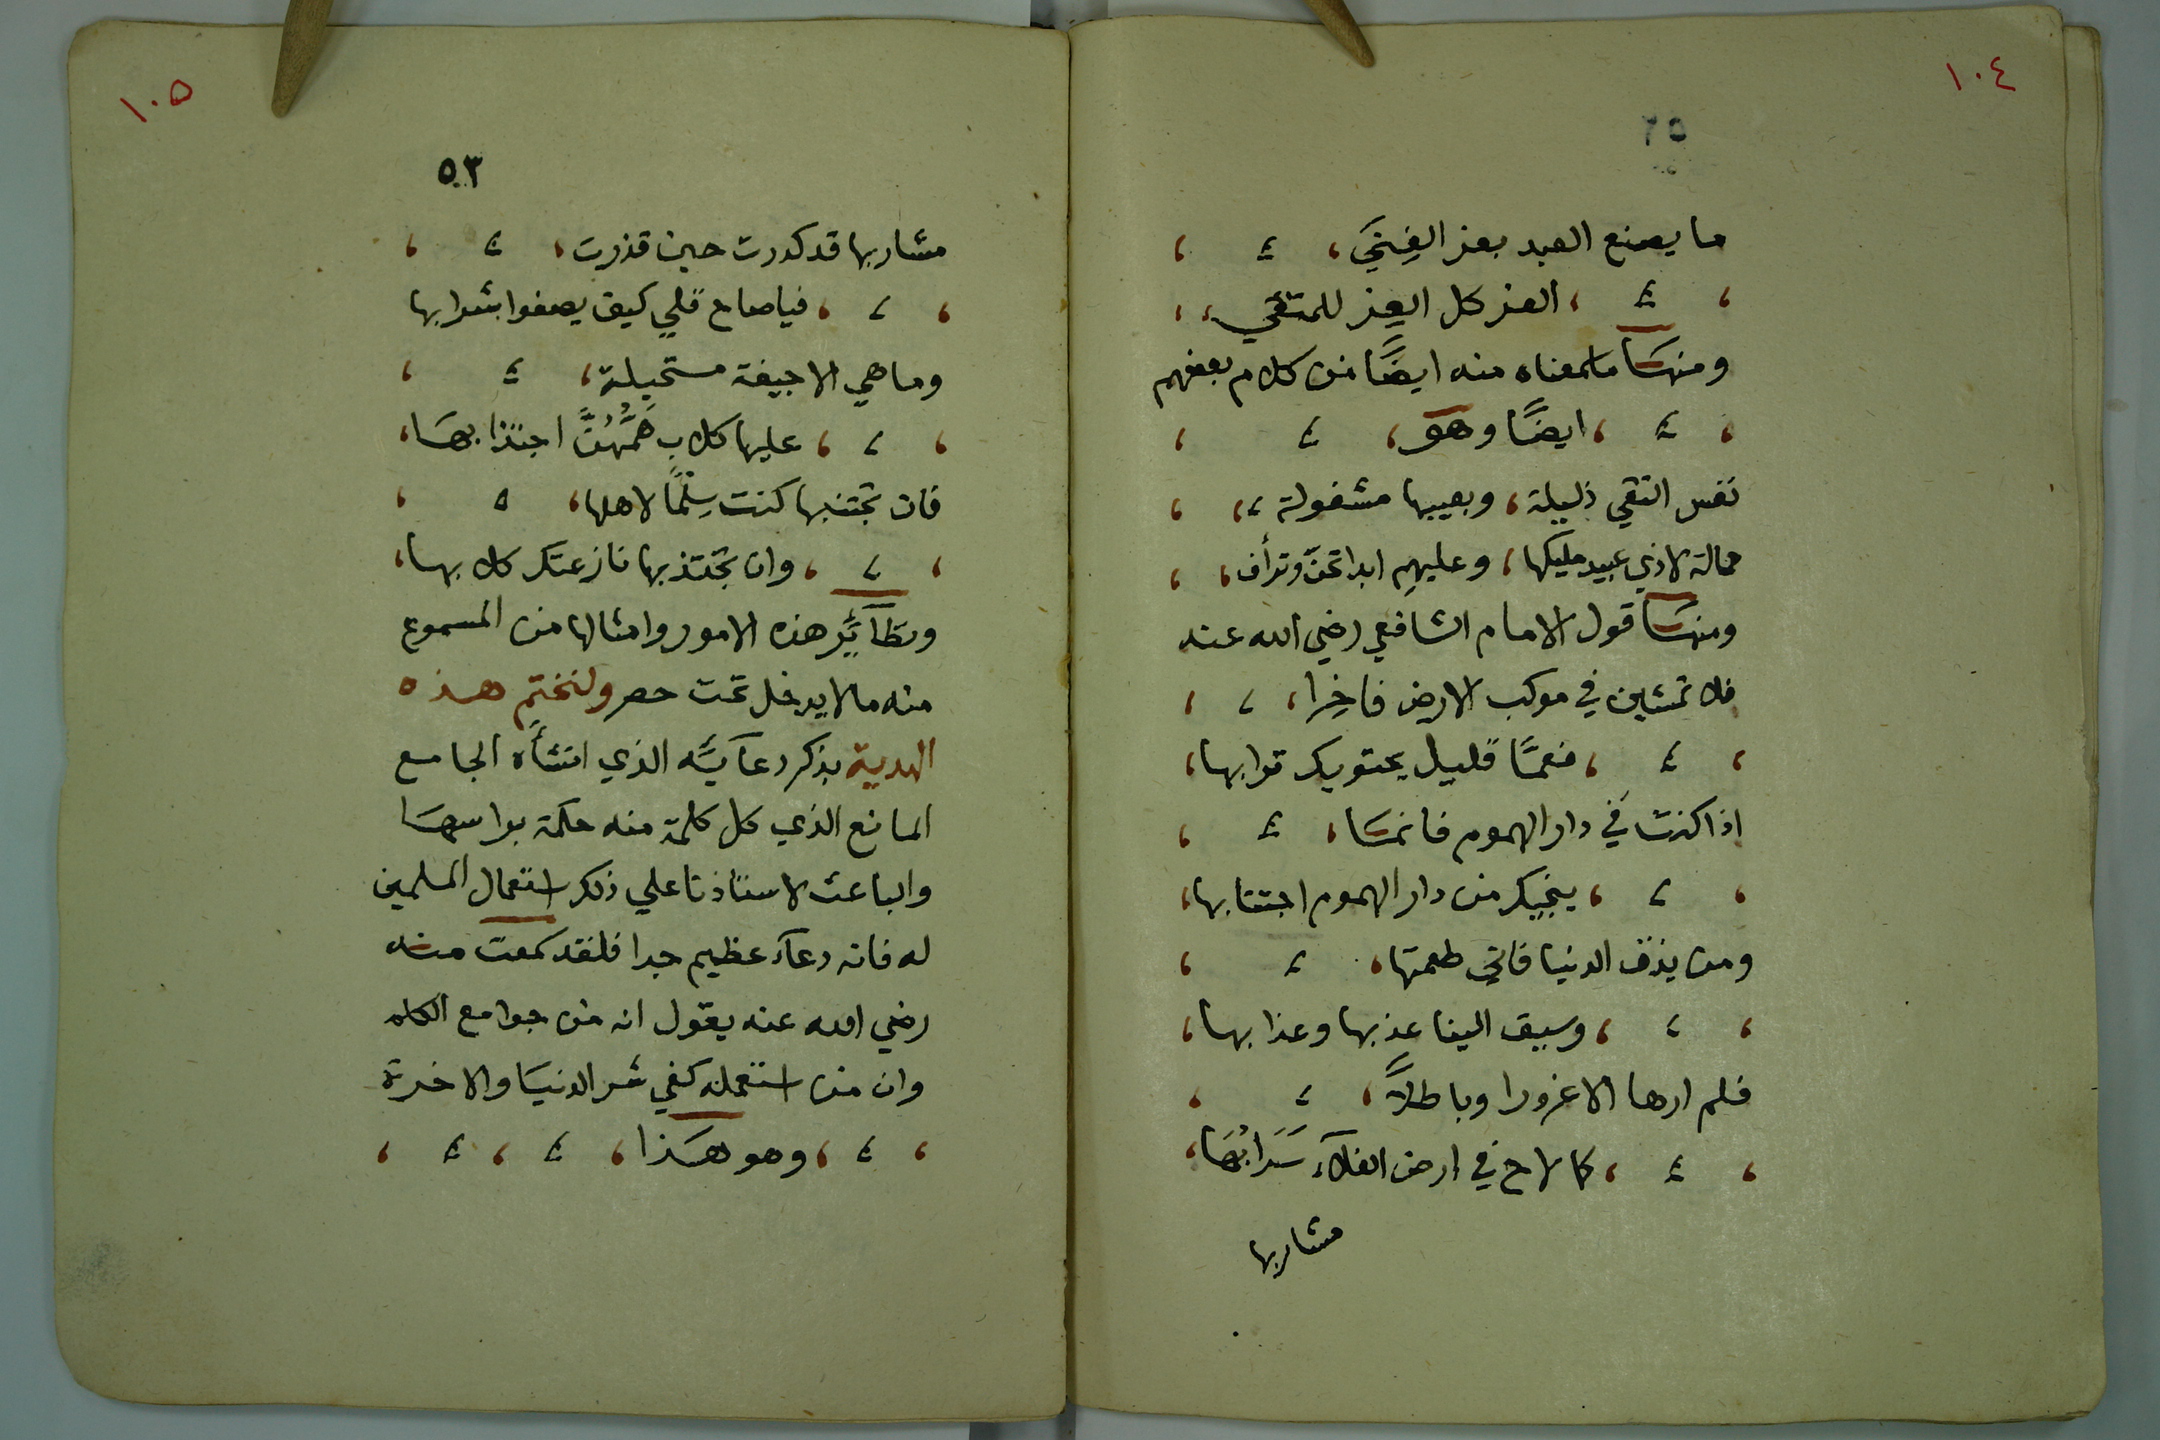 ١٠٤
ما يصنع العبد بعز الغِنَى
العز كل العِز للمتقي
ومنها ما سمعناه منه ايضًا من كلام بعضهم
ايضًا وهو
نفس التقي ذليلة، وبعيبها مشغولة
لاذي عبيد مليكها، وعليهم ابدا تحنّ وترأف
ومنها قول الامام الشافعي رضي الله عنه
فلا تمشين في موكب الارض فاخِرا
فعمَّا قليل يحتويك ترابها
اذا كنت في دار الهموم فانما
ينجيك من دار الهموم اجتنابها
ومن يذق الدنيا فاني طعمتها
وسيق الينا عذبها وعذابها
فلم ارها الا غرورا وباطلاً
كما لاح في ارض الفلآء سَرَابُهَا
مشاربها
١٠٥
٥٣
مشاربها قد كدرت حين قذرت
فيا صاح قلي كيف يصفوا شرابها
وما هي الا جيفة مستحيلة
عليها كلاب هَمُّهُنَّ اجتذابها
فان تجتنبها كنت سِلْمًا لاهلها
وان تجتذبها نازعتك كلابها
ونظآئِر هذه الامور وامثالها من المسموع
منه مالا يدخل تحت حصر ولنختم هذه
الهدية بذكر دعآئِه الذي انشأه الجامع
المانع الذي كل كلمة منه حكمة براسها
والباعث لاستاذنا علي ذلك استعمال المسلمين
له فانه دعآء عظيم جدا فلقد سمعت منه
رضي الله عنه يقول انه من جوامع الكلام
وان من استعمله كفي شر الدنيا والاخرة
وهو هكذا